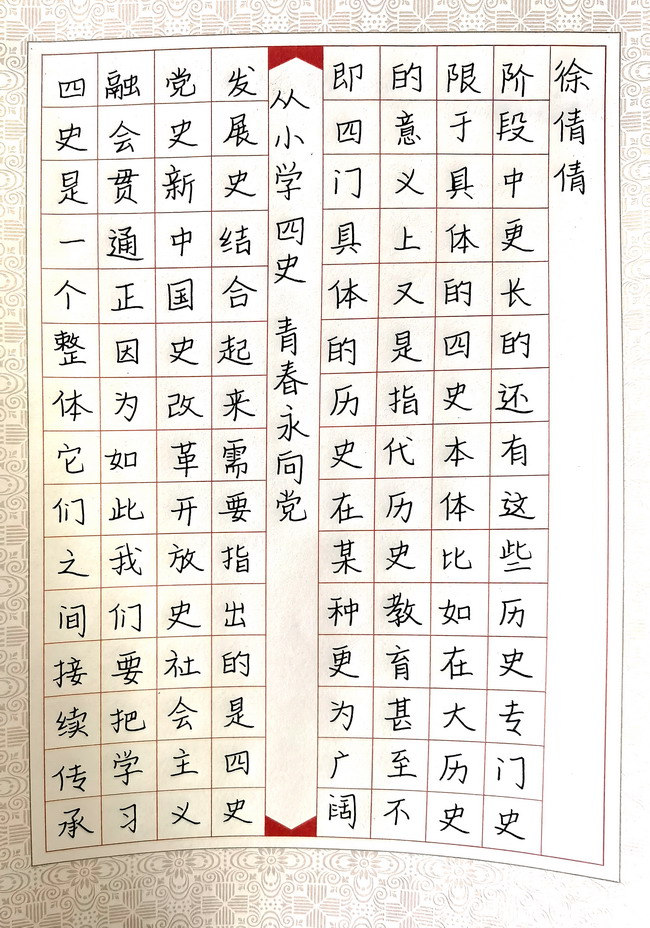 四史是一个整体它们之间接续传承
融会贯通正因为如此我们要把学习
党史新中国史改革开放史社会主义
发展史结合起来需要指出的是四史
从小学四史 青春永向党
即四门具体的历史在某种更为广阔
的意义上又是指代历史教育甚至不
限于具体的四史本体比如在大历史
阶段中更长的还有这些历史专门史
徐倩倩